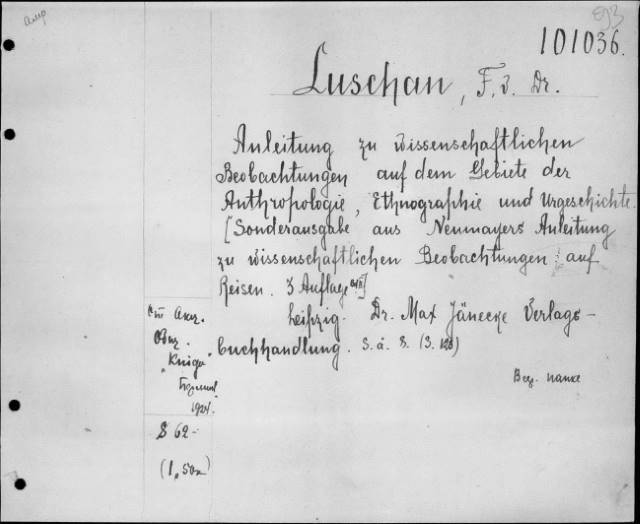 101036.
Luschan, F. v. Dr.
Anleitung zu wissenschaftlichen
Beobachtungen auf dem Gebiete der
Anthropologie, Ethnographie und Urgeschichte.
[Sonderausgabe aus Neumayers Anleitung
zu wissenschaftlichen Beobachtungen auf
Reisen. 3 Auflage]
Leipzig. Dr. Max Jänecke Verlags-
buchhandlung. s. a. 8. (S. 123)
"Kniga"
1924.
8 62-